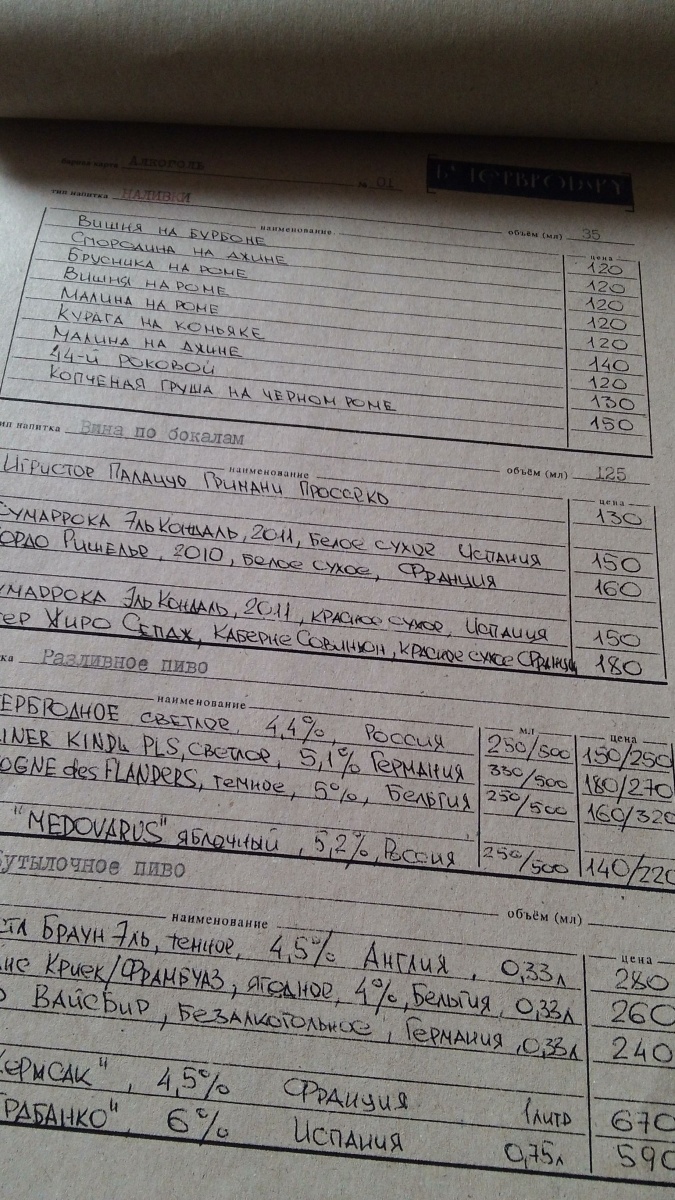 барная карта Алкоголь № 01
тип напитка НАЛИВКИ
наименование объём (мл) 35
цена
ВИШНЯ НА БУРБОНЕ 120
СМОРОДИНА НА ДЖИНЕ 120
БРУСНИКА НА РОМЕ 120
ВИШНЯ НА РОМЕ 120
МАЛИНА НА РОМЕ 120
КУРАГА НА КОНЬЯКЕ 140
МАЛИНА НА ДЖИНЕ 120
14-Й РОКОВОЙ 130
КОПЧЕНАЯ ГРУША НА ЧЕРНОМ РОМЕ 150
ип напитка Вина по бокалам
наименование объём (мл) 125
цена
ИГРИСТОЕ ПАЛАЦЦО ГРИМАНИ ПРОССЕКО 130
СУМАРРОКА ЭЛЬ КОНДАЛЬ, 2011, БЕЛОЕ СУХОЕ ИСПАНИЯ 150
ОРДО РИШЕЛЬЕ, 2010, БЕЛОЕ СУХОЕ, ФРАНЦИЯ 160
УМАРРОКА ЭЛЬ КОНДАЛЬ, 2011, КРАСНОЕ СУХОЕ, ИСПАНИЯ 150
ЕР ЖИРО СЕПАЖ, КАБЕРНЕ СОВИНЬОН, КРАСНОЕ СУХОЕ ФРАНЦИЯ 180
ка Разливное пиво
наименование мл цена
ЕРБРОДНОЕ СВЕТЛОЕ, 4,4% РОССИЯ 250/500 150/250
INER KINDL PLS, СВЕТЛОЕ, 5,1% ГЕРМАНИЯ 330/500 180/270
OGNE des FLANDERS, ТЕМНОЕ, 5%, БЕЛЬГИЯ 250/500 160/320
"MEDOVARUS" ЯБЛОЧНЫЙ, 5,2%, РОССИЯ 250/500 140/220
Бутылочное пиво
наименование объём (мл)
цена
СТЛ БРАУН ЭЛЬ, ТЕМНОЕ, 4,5% АНГЛИЯ, 0,33л 280
КРИЕК/ФРАМБУАЗ, ЯГОДНОЕ, 4%, БЕЛЬГИЯ, 0,33л 260
О ВАЙСБИР, БЕЗАЛКОГОЛЬНОЕ, ГЕРМАНИЯ, 0,33л 240
КЕРИСАК", 4,5% ФРАНЦИЯ 1 ЛИТР 670
ТРАБАНКО", 6% ИСПАНИЯ 0,75л 590